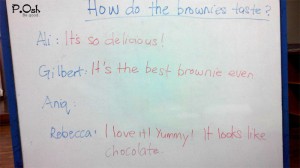 P.Osh
How do the brownies taste?
Ali : It's so delicious!
Gilbert: It's the best brownie ever.
Aniq:
Rebecca: I love it! Yummy! It looks like
chocolate.